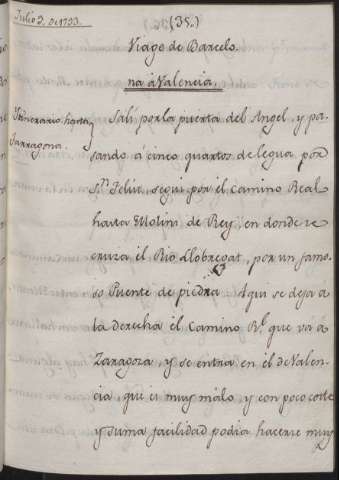 Julio 2, de 1793.
(35.)
Viage de Barcelo
na à Valencia,
Itinerario hasta
Tarragona.
Salí por la puerta del Angel, y pa-
sando á cinco quartos de legua por
Sn. Feliu, segui por el Camino Real
hasta Molins de Rey, en donde se
cruza el Rio Llobregat, por un famo-
so Puente de piedra Aqui se deja a
la derecha el Camino Rl. que va à
Zaragoza, y se entra en el de Valen-
cia, que es muy malo, y con poco coste
y suma facilidad podia hacerse muy